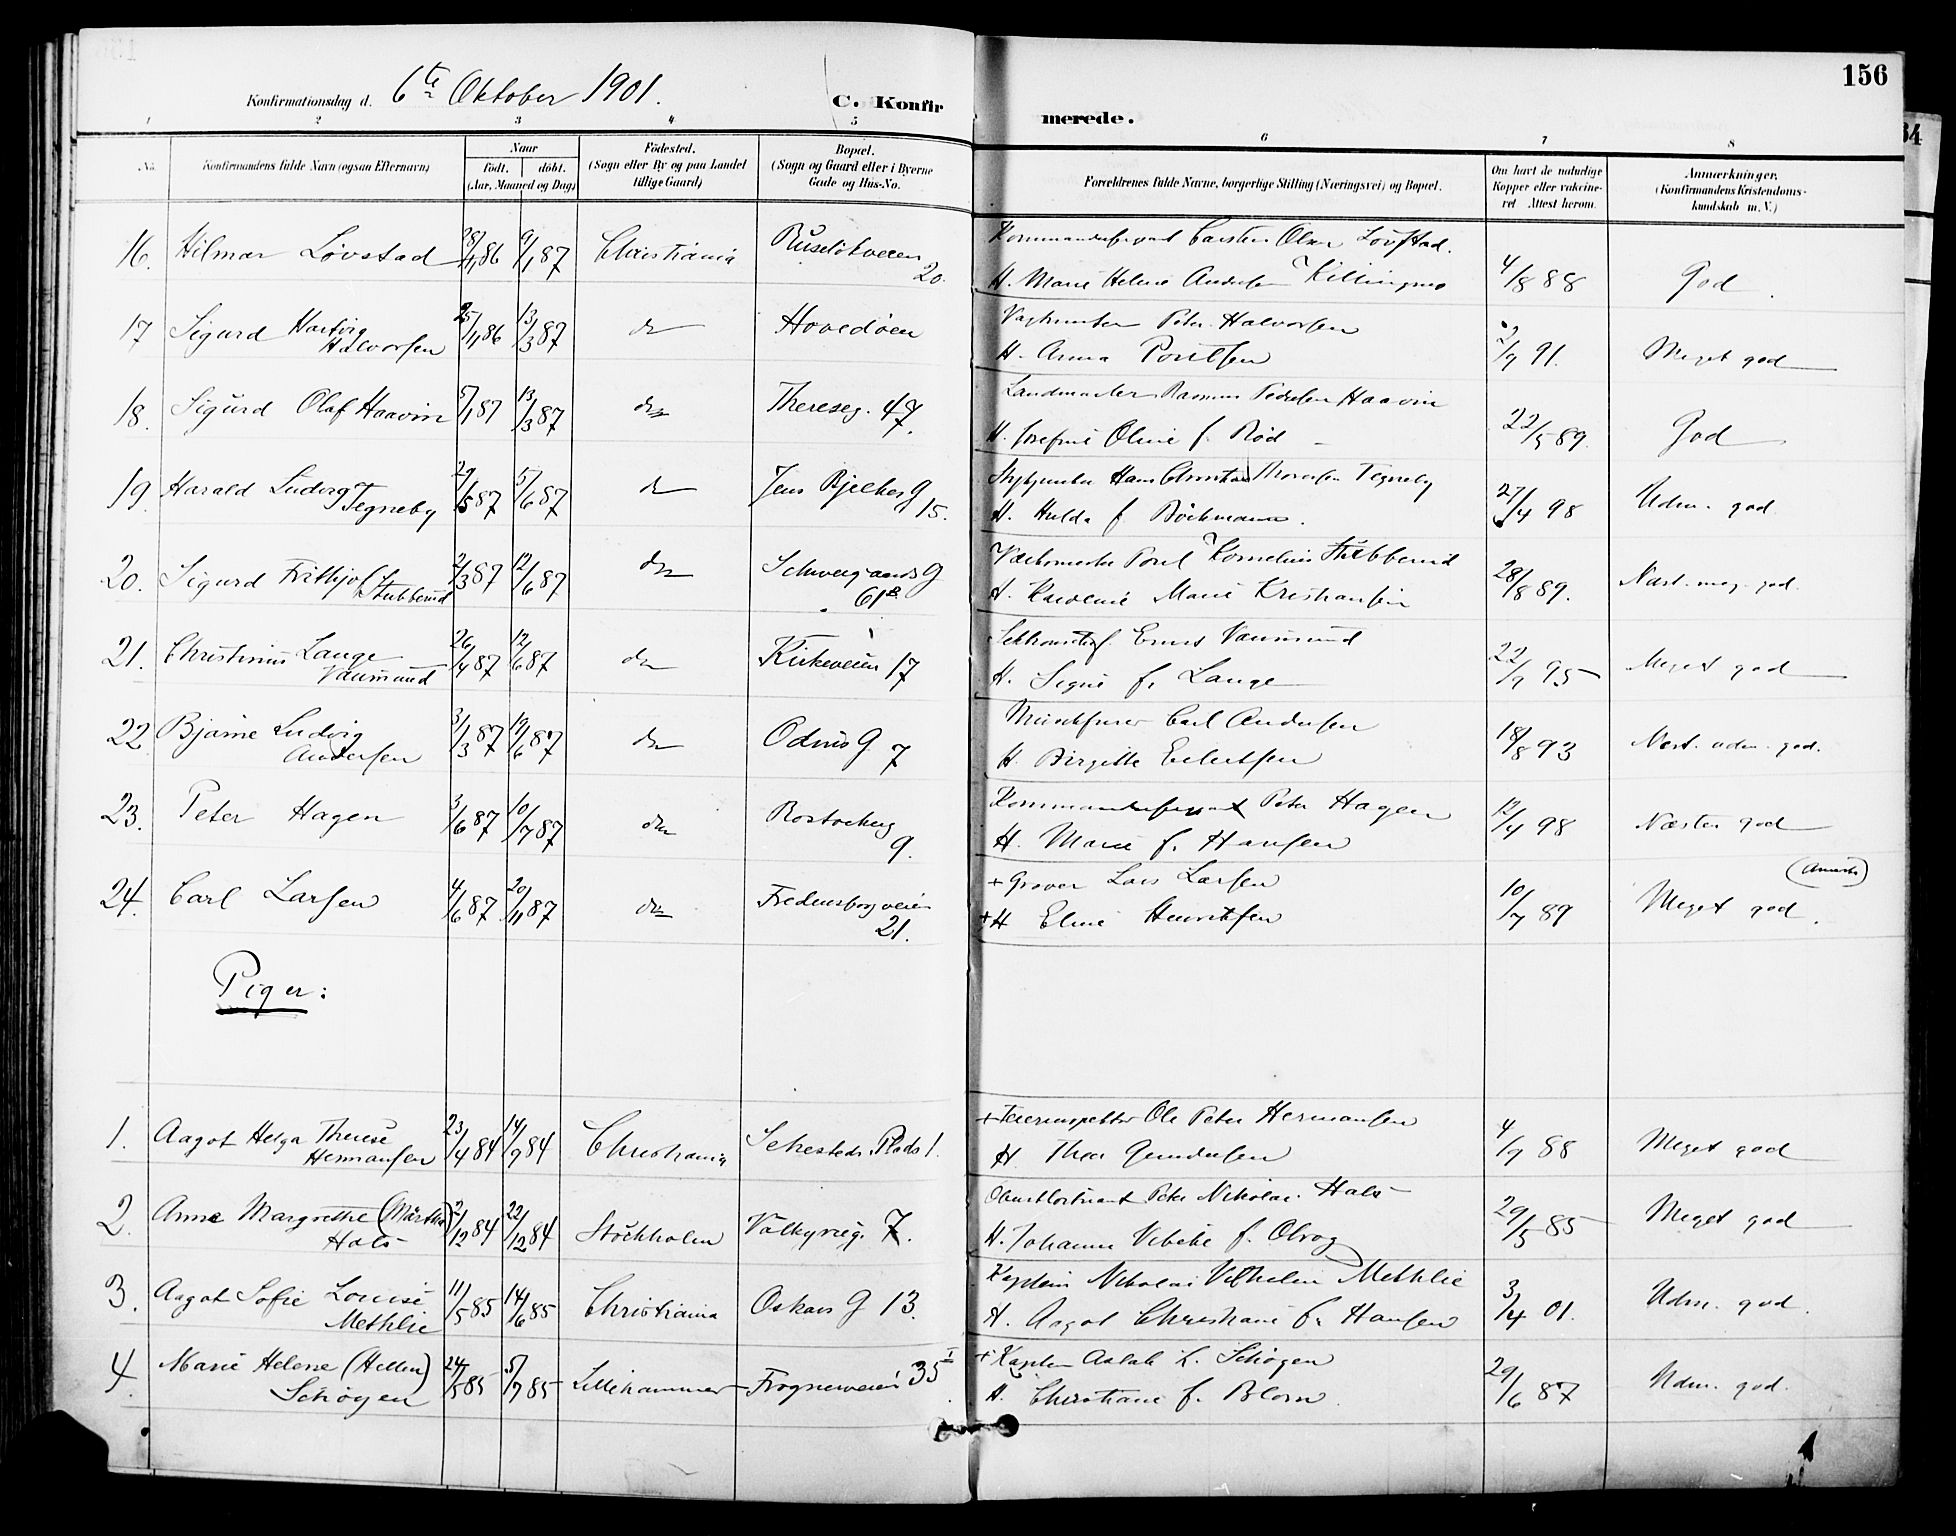 156
Konfirmationsdag d. 6te Oktober 1901.
C. Konfirmerede.
1 2 3 4 5 6 7 8
No. Konfirmandens fulde Navn (ogsaa Efternavn)
Naar
født. døbt.
(Aar, Maaned og Dag)
Fødested.
(Sogn eller By og paa Landet
tillige Gaard)
Bopæl.
(Sogn og Gaard eller i Byerne
Gade og Hus-No.
Forældrenes fulde Navne, borgerlige Stilling (Næringsvei) og Bopæl.
Om havt de naturlige
Kopper eller vakcine-
ret Attest herom.
Anmærkninger.
(Konfirmandens Kristendoms-
kundskab m. V.)
16. Hilmar Løvstad 28/11 86 9/1 87 Christiania Ruseløkveien 20.
Carsten Olsen Løvstad.
H. Marie Helene Andersen Killingmo 4/8 88 God
17 Sigurd Hartvig Halvorsen 25/11 86 13/3 87 do Hovedøen
Peter Halvorsen
H. Anna Poulsen 2/9 91. Meget god
18. Sigurd Olaf Haavin 5/1 87 13/3 87 do Thereseg. 47.
Rasmus Pedersen Haavin
H. Josefine Oline f. Rød 22/5 89. God
19. Harald Ludvig Tegneby 29/5 87 5/6 87 do Jens Bjelkes G 15.
Hans Christian Tegneby
H. Hulda f. Böckmann. 27/4 98 Udm. god
20. Sigurd Frithjof Stubberud 2/3 87 12/6 87 do Schweigaards G 61B
Værkmester Poul Kornelius Stubberud
H. Karoline Marie Kristiansen 28/8 89. Næst. meg. god.
21. Christinus Lange Vaumund 26/4 87 12/6 87 do Kirkeveien 17
Ernst Vaumund
H. Signe f. Lange 22/9 95 Meget god
22 Bjarne Ludvig Andersen 3/3 87 19/6 87 do Odins G 7
Carl Andersen
H. Birgitte Eilertsen 18/8 93 Næst. udm. god.
23. Peter Hagen 3/6 87 10/7 87 do 9.
Peter Hagen
H. Marie f. Hansen 12/4 98 Næsten god
24. Carl Larsen 4/6 87 20/11 87 do Fredensborgveien 21.
+ Graver Lars Larsen
+ H Eline Henriksen 10/7 89 Meget god.
Piger:
1. Aagot Helga Therese Hermansen 23/4 84 14/9 84 Christiania Sehesteds Plads 1.
+ Ole Peter Hermansen
H. Thea Gundersen 4/9 88 Meget god
2. Anna Margrethe (Märtha) Hals 2/12 84 22/12 84 Stockholm Valkyrieg. 7.
Peter Nikolai Hals
H. Johanne Vibeke f. Olrog 29/5 85 Meget god
3. Aagot Sofie Louise Methlie 11/5 85 14/6 85 Christiania Oskars G 13.
Kaptein Nikolai Vilhelm Methlie
H. Aagot Christiane f. Hansen 3/4 01. Udm. god.
4. Marie Helene (Hellen) Schøyen 24/5 85 5/7 85 Lillehammer Frogneveien 35 I
+ Kaptein Aslak L. Schøyen
H. Christiane f. Blom. 29/6 87 Udm. god.